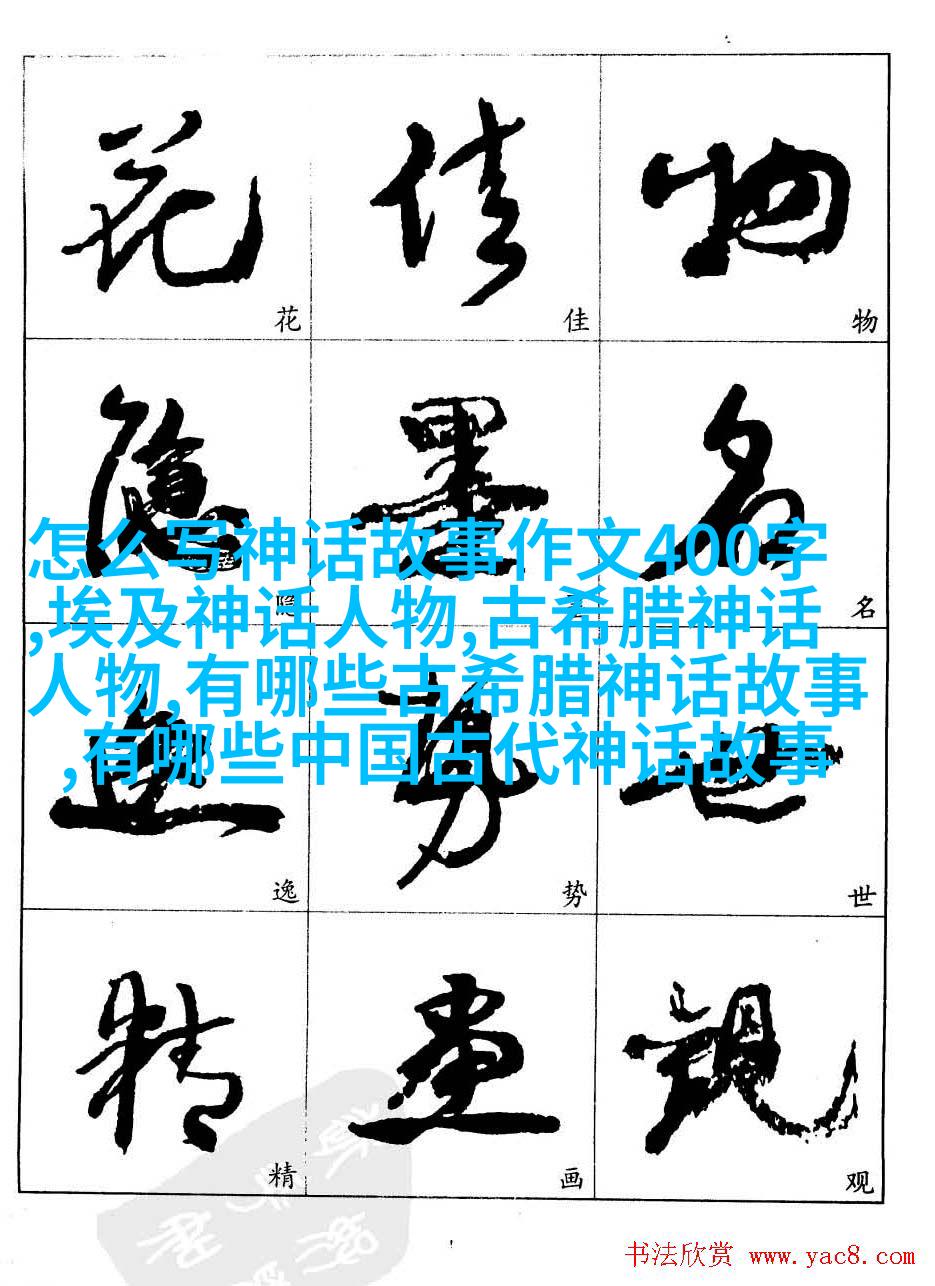 花 佳 物
花 佳 物
隐 墨 名
怎么写神话故事作文400字
,埃及神话人物,古希腊神话
人物,有哪些古希腊神话故事
,有哪些中国古代神话故事
隐 名
逸 势 世
逸 势 世
精 画 观
精 画 观
书法欣赏 www.yac8.com